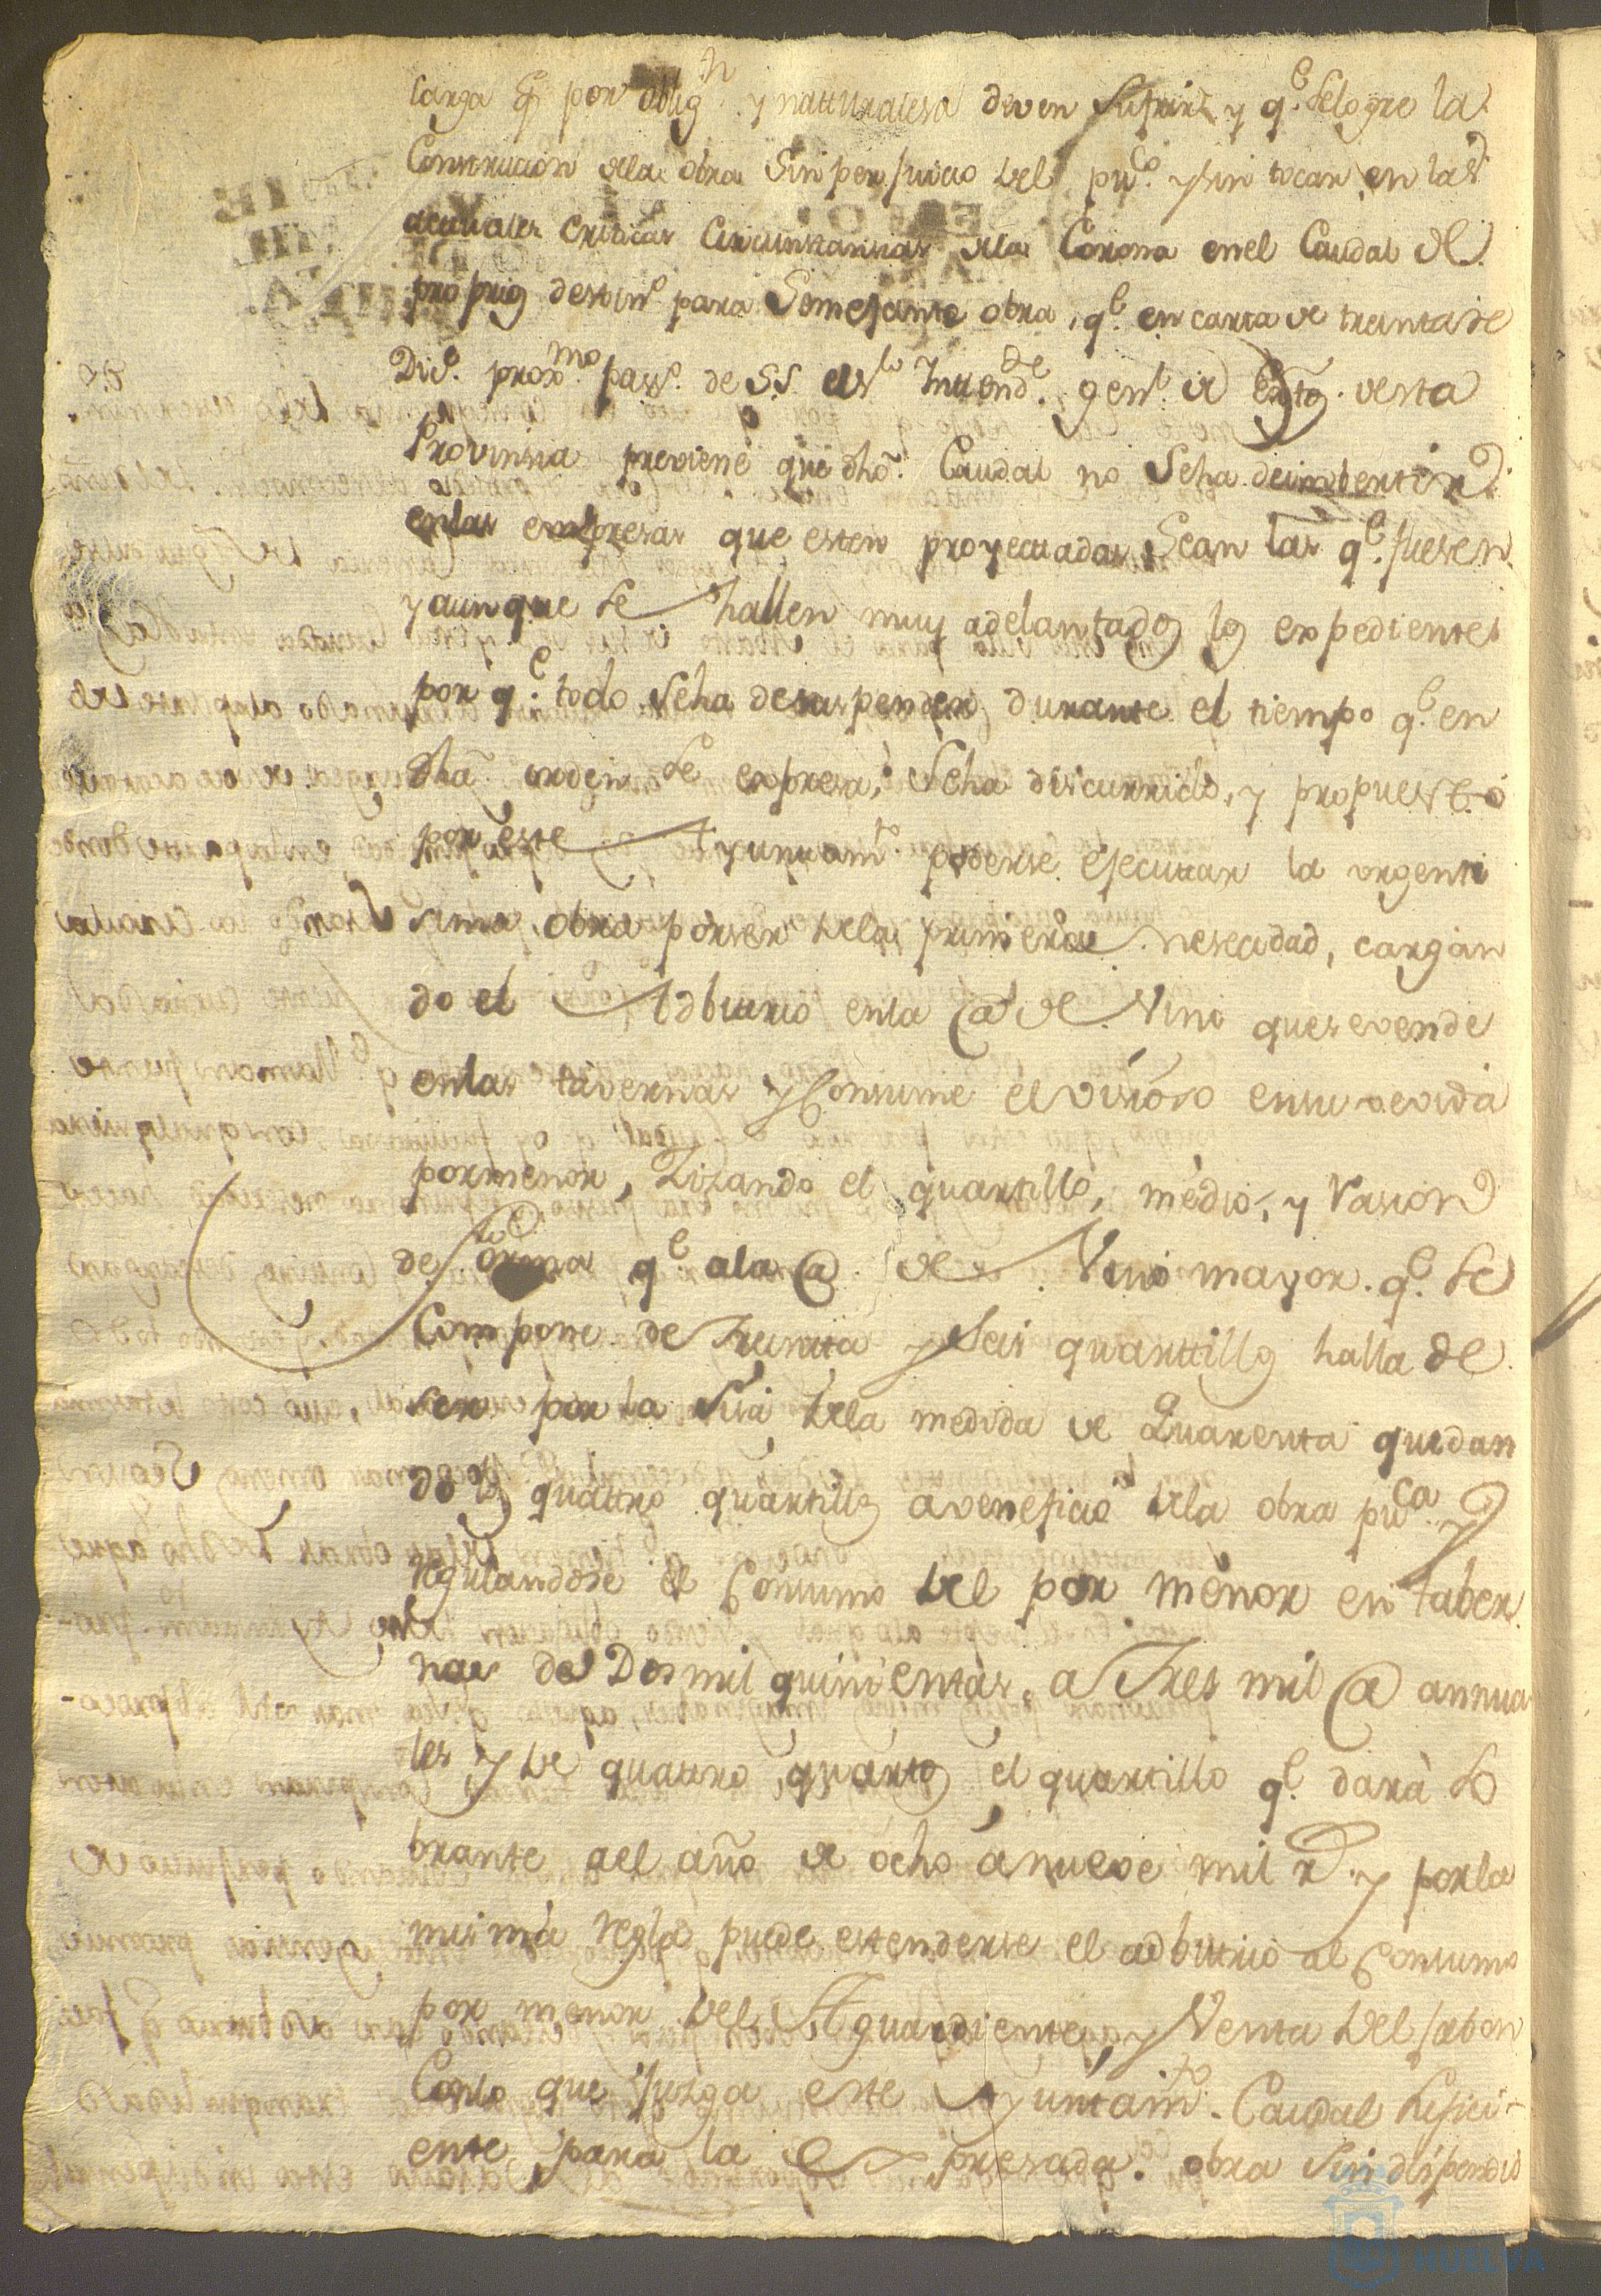 larga q.e por oblig.n y natturalesa deven sufrir y q.e selogre la
Construcion dela obra sin perjuicio del pu.co y sin tocar en las
actuales criticas circunstansias dela Corona en el Caudal de
proprios destin.o para semejante obra, q.e en carta de treinta de
Dic.e prox.mo pass.o de S.S. el s.or Intend.te gen.l de Exto. desta
Provinsia previene que dho. Caudal no seha deimbertir
enlas empresas que esten proyectadas, sean las q.e fuesen
y aunque se hallen muy adelantados los expedientes
por q.e todo seha desuspender, durante el tiempo q.e en
dha orden se expresa, seha discurrido, y propuesto
por este Ayuntam.to poderse ejecuttar la urgenti
sima obra por ser dela primera nesecidad, cargan
do el Adbitrio enla @ de Vino que sevende
enlas tavernas y Consume el visioso ensu vevida
pormenor, Sizando el quartillo, medio, y Vasion
de forma q.e ala @ de Vino mayor q.e se
Compone de Treinta y seis quarttillos halla de
ser por la sisa dela medida de Quarenta quedan
do los quattro quartillos a veneficio dela obra pu.ca y
regulandose el Consumo del por menor en taber
nas de Dos mil quinientas, a Tres mil @ annua
les y de quattro quartos el quartillo q.e darà so
brante al año de ocho ánueve mil r.s y por la
misma regla puede estenderse el adbitrio al Consumo
por menor del Aguardiente, y Venta del Jabon
Conlo que Jusga este Ayuntam.to Caudal sufici-
ente para la expresada obra sin dispendio
HUELVA